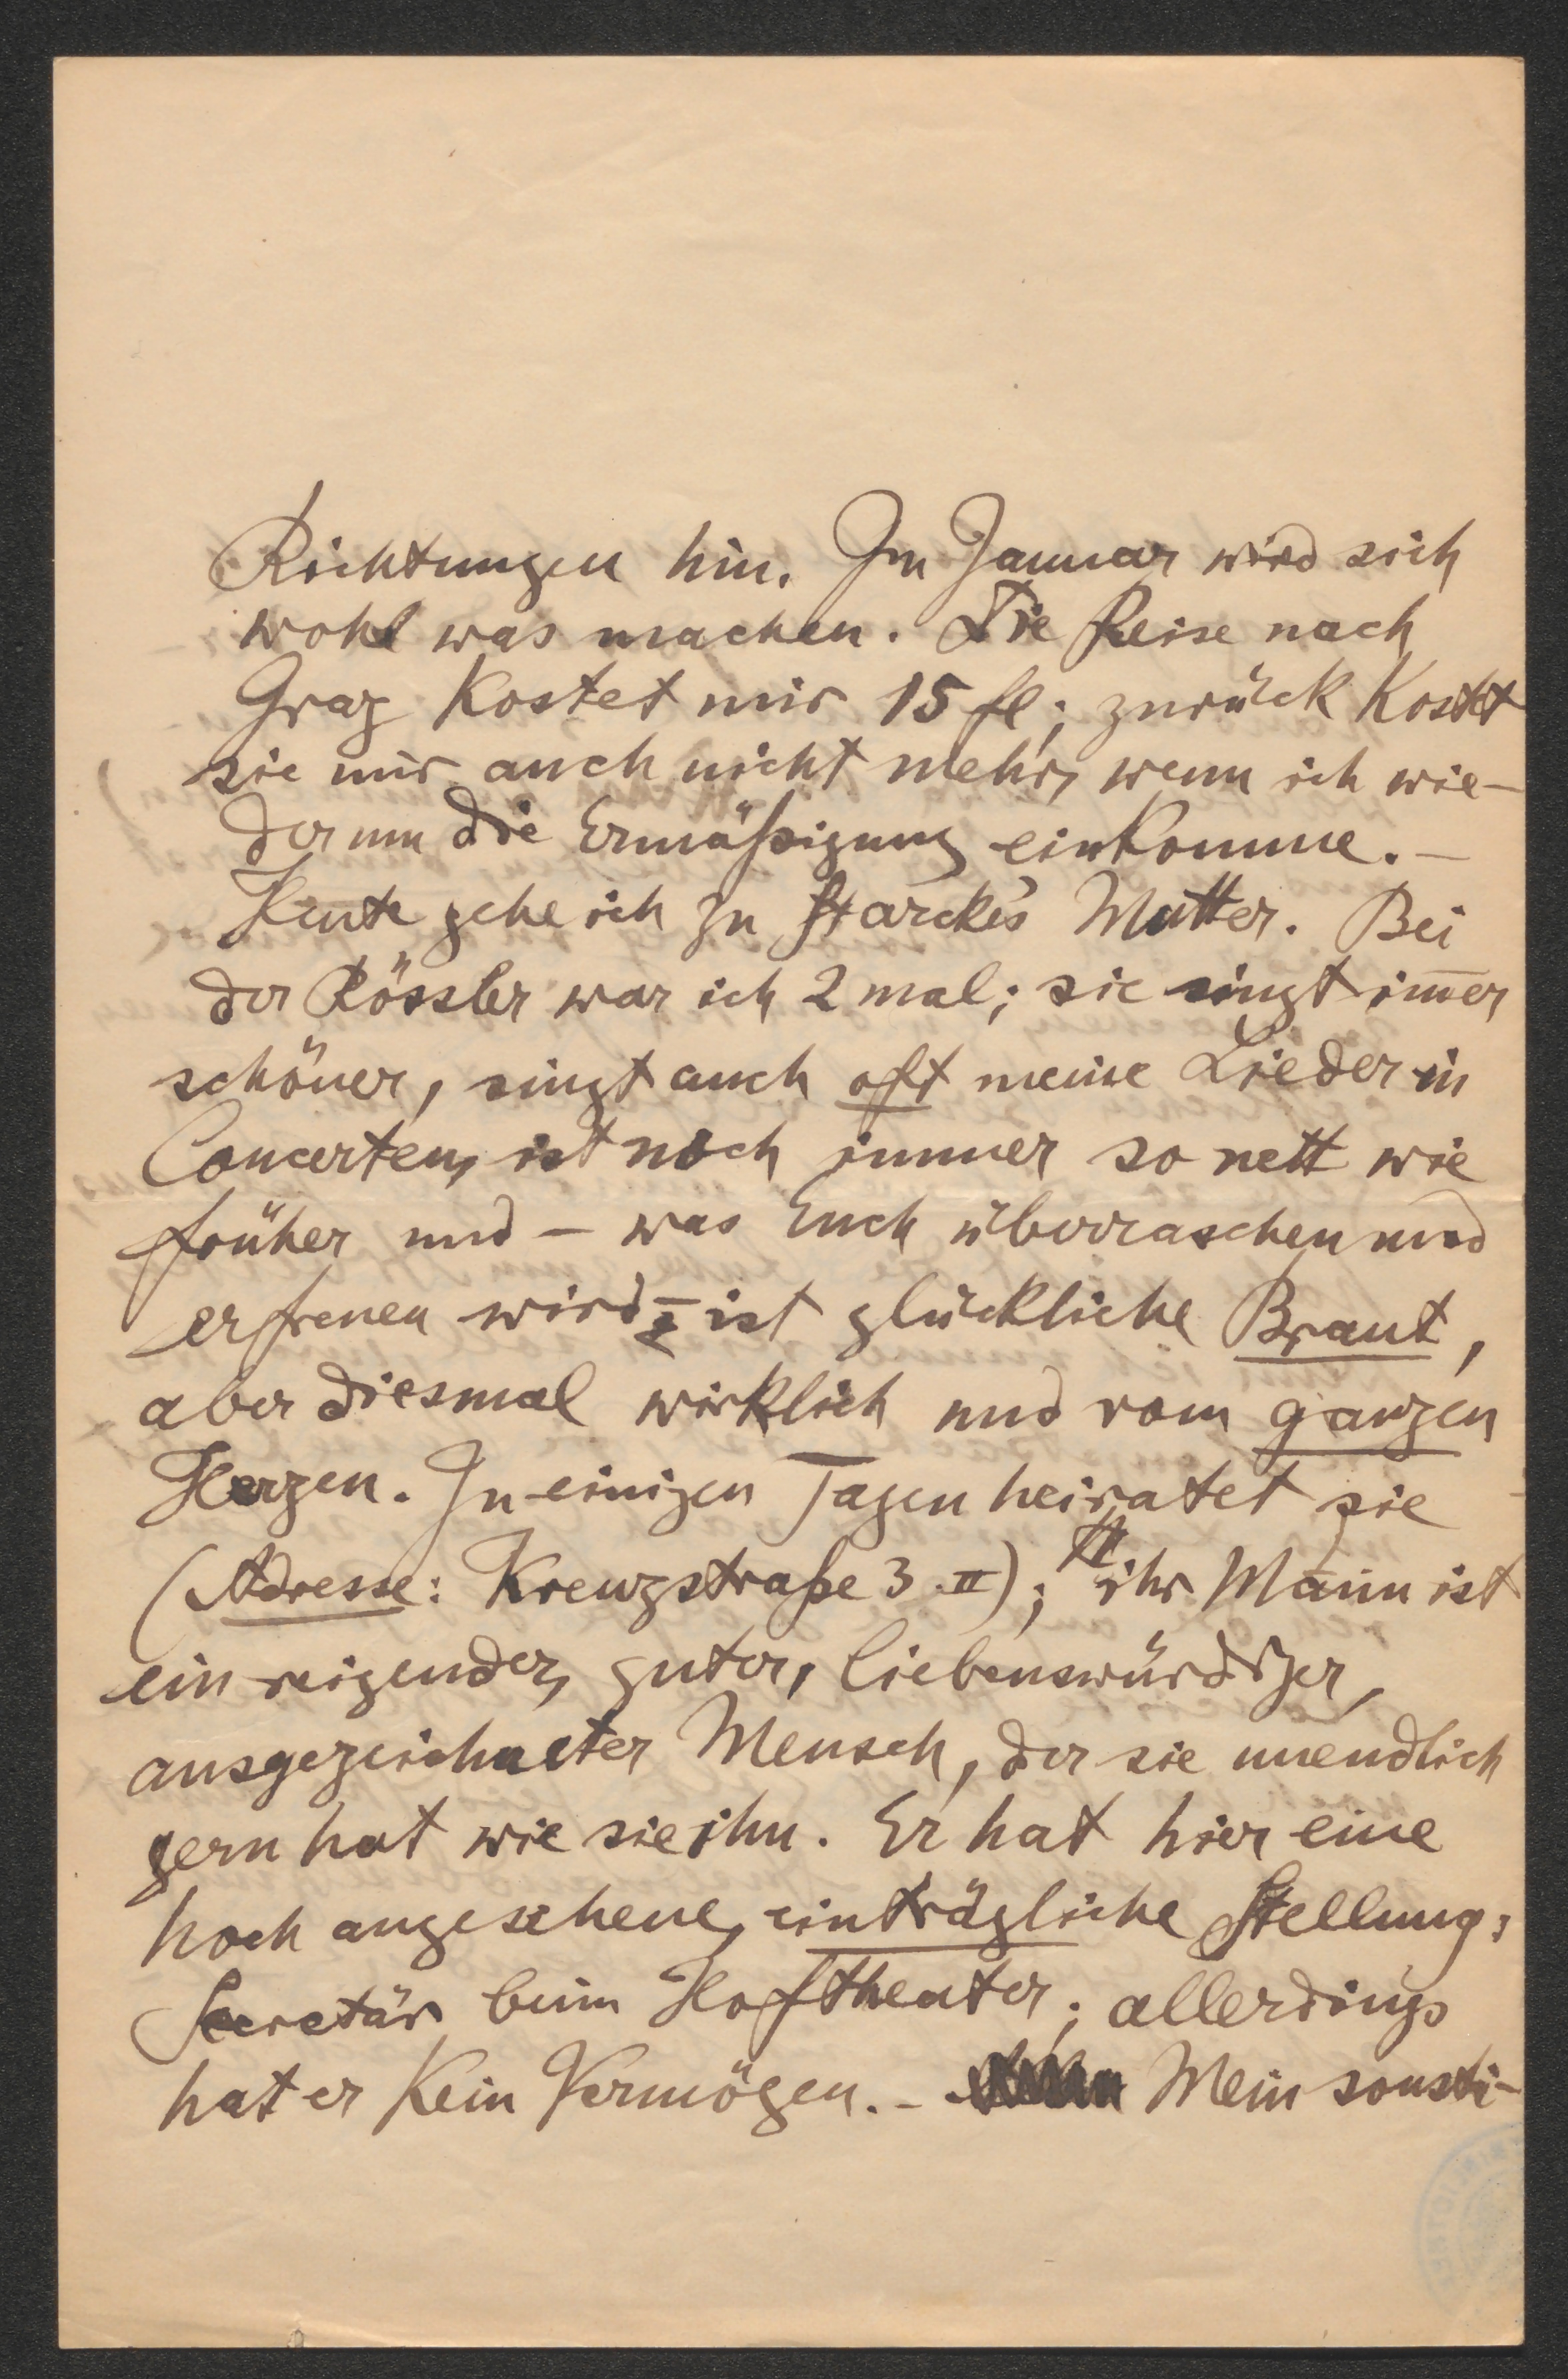 Richtungen hin. Im Januar wird sich
wohl was machen. Die Reise nach
Graz kostet mir 15 fl; zurück kostet
sie mir auch nicht mehr, wenn ich wie-
der um die Ermäßigung einkomme. –
Heute gehe ich zu Starcke's Mutter. Bei
der Rössler war ich 2 mal; sie singt im̄er
schöner, singt auch oft meine Lieder in
Concerten, ist noch immer so nett wie
früher und – was Euch überraschen und
erfreuen wird – ist glückliche Braut,
aber diesmal wirklich und vom ganzen
Herzen. In einigen Tagen heiratet sie
(Adresse: Kreuzstraße 3 II); ihr Mann ist
ein reizender, guter, liebenswürdiger,
ausgezeichneter Mensch, der sie unendlich
gern hat wie sie ihn. Er hat hier eine
hoch angesehene, einträgliche Stellung:
Secretär beim Hoftheater; allerdings
hat er kein Vermögen. – Mein sonsti-